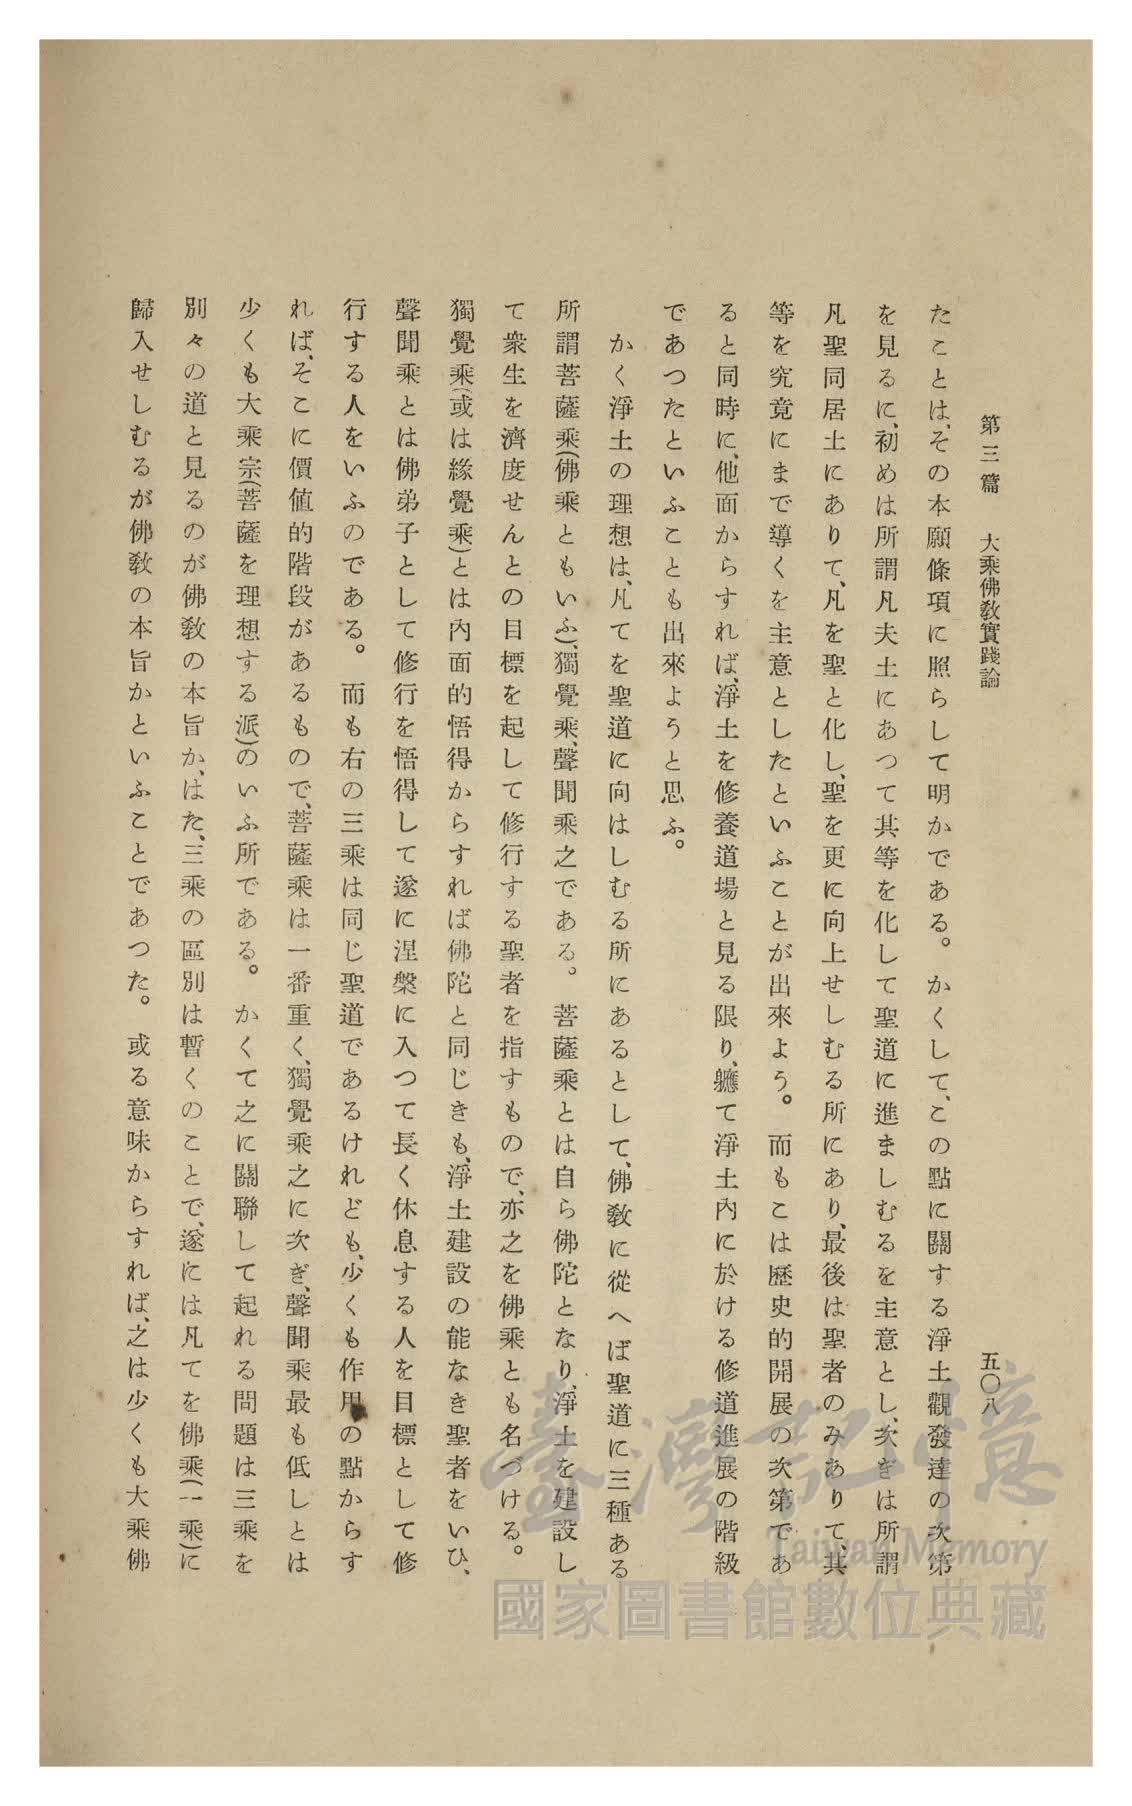 第三篇　大乘佛敎實踐論
五〇八
たことは、その本願條項に照らして明かである。かくして、この點に關する淨土觀發達の次第
を見るに、初めは所謂凡夫土にあつて其等を化して聖道に進ましむるを主意とし、次ぎは所謂
凡聖同居土にありて、凡を聖と化し、聖を更に向上せしむる所にあり、最後は聖者のみありて、其
等を究竟にまで導くを主意としたといふことが出來よう。而もこは歷史的開展の次第であ
ると同時に、他面からすれば、淨土を修養道場と見る限り、軈て淨土內に於ける修道進展の階級
であつたといふことも出來ようと思ふ。
かく淨土の理想は、凡てを聖道に向はしむる所にあるとして、佛敎に從へば聖道に三種ある
所謂菩薩乘(佛乘ともいふ)、獨覺乘、聲聞乘之である。菩薩乘とは自ら佛陀となり、淨土を建設し
て衆生を濟度せんとの目標を起して修行する聖者を指すもので、亦之を佛乘とも名づける。
獨覺乘(或は緣覺乘)とは內面的悟得からすれば佛陀と同じきも、淨土建設の能なき聖者をいひ、
聲聞乘とは佛弟子として修行を悟得して遂に涅槃に入つて長く休息する人を目標として修
行する人をいふのである。而も右の三乘は同じ聖道であるけれども、少くも作用の點からす
れば、そこに價値的階段があるもので、菩薩乘は一番重く、獨覺乘之に次ぎ、聲聞乘最も低しとは
少くも大乘宗(菩薩を理想する派)のいふ所である。かくて之に關聯して起れる問題は三乘を
別々の道と見るのが佛敎の本旨か、はた、三乘の區別は暫くのことで、遂には凡てを佛乘(一乘)に
歸入せしむるが佛敎の本旨かといふことであつた。或る意味からすれば、之は少くも大乘佛
臺灣記憶
Taiwan Memory
國家圖書館數位典藏